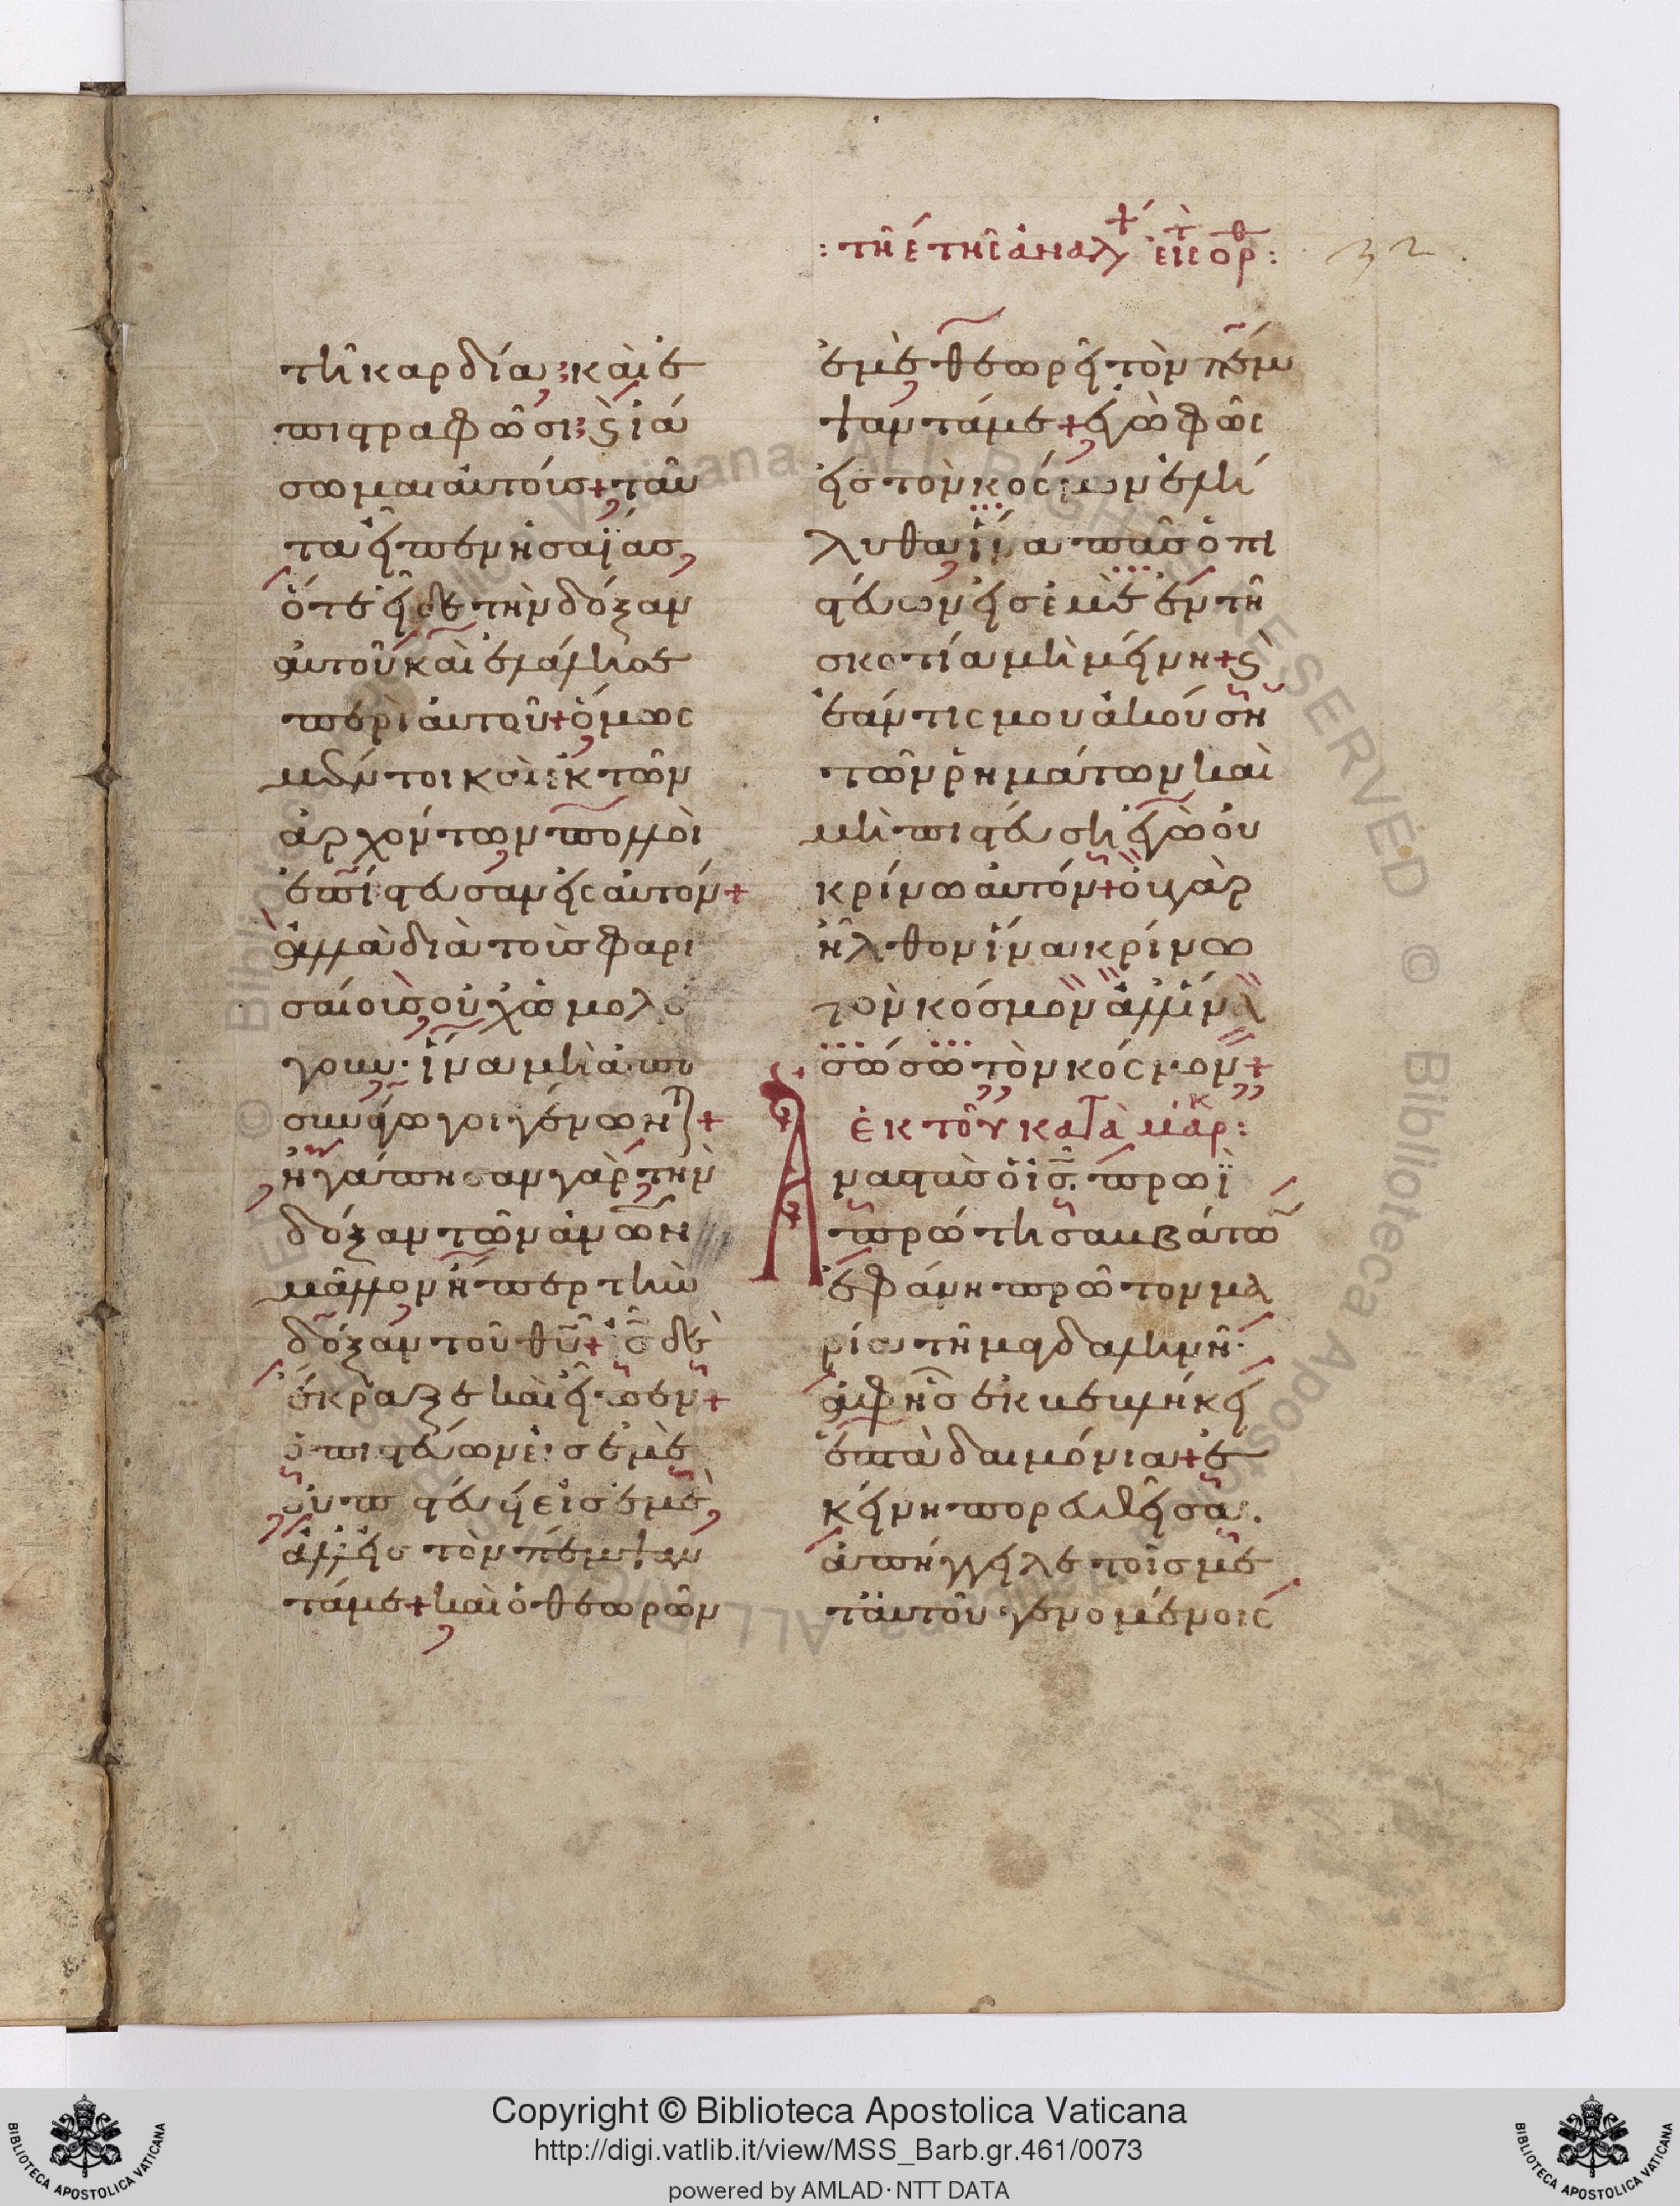 : τῆ έ τῆς ἀναλή ψ εἰς τ ορθ :
32
τῆ καρδία; καὶ ἐ
πιστραφῶσι; ϛ ἰά
σωμαι αὐτοίσ + ταῦ
τα εἶπεν ἡσαΐασ,
ότε εἶδε τὴν δόξαν
αὐτοῦ καὶ ἐλάλησε
περὶ αὐτοῦ + ὅμως
μέντοι καὶ ἐκ τῶν
ἀρχόντων πολλοὶ
ἐπίστευσαν εἰς αὐτόν +
ἀλλὰ διὰ τοὺσ φαρι
σαίουσ οὐχ ὡμολό
γουν · ἵνα μὴ ἀπο
συνάγωγοι γένωνται +
ἠγάπησαν γὰρ τὴν
δόξαν τῶν ἀνων
μᾶλλον ἤπερ τὴν
δόξαν τοῦ θυ + ὁ ισ δὲ
έκραξε καὶ εἶπεν +
ὁ πιστεύων εἰσ ἐμὲ
οὐ πιστεύει εἰσ ἐμὲ,
ἀλλ' εἰσ τὸν πέμψαν
τά με + καὶ ὁ θεωρῶν
ἐμὲ θεωρεῖ τὸν πέμ
ψαντά με + ἐγὼ φῶς
εἰσ τὸν κόσμον ἐλή
λυθα ἵνα πᾶσ ὁ πι
στεύων εἰσ ἐμὲ ἐν τῆ
σκοτία μὴ μείνη + ϛ
ἐάν τις μου ἀκούση
τῶν ῥημάτων καὶ
μὴ πιστεύση ἐγὼ οὐ
κρίνω αὐτόν + οὐ γὰρ
ἦλθον ἵνα κρίνω
τὸν κόσμον ἀλλ' ἵνα
σώσω τὸν κόσμον +
ἐκ τοῦ κατὰ μάρκ :
Αναστὰσ ὁ ισ. πρωῒ
πρώτη σαββάτω
ἐφάνη πρῶτον μα
ρία τῆ μαγδαληνῆ ·
ἀφ' ἧσ ἐκβεβλήκει
ἑπτὰ δαιμόνια + ἐ
κείνη πορευθεῖσα.
ἀπήγγειλε τοῖσ με
τ' αὐτοῦ γενομένοις
Copyright © Biblioteca Apostolica Vaticana
http://digi.vatlib.it/view/MSS_Barb.gr.461/0073
powered by AMLAD·NTT DATA
BIBLIOTECA APOSTOLICA VATICANA
BIBLIOTECA APOSTOLICA VATICANA